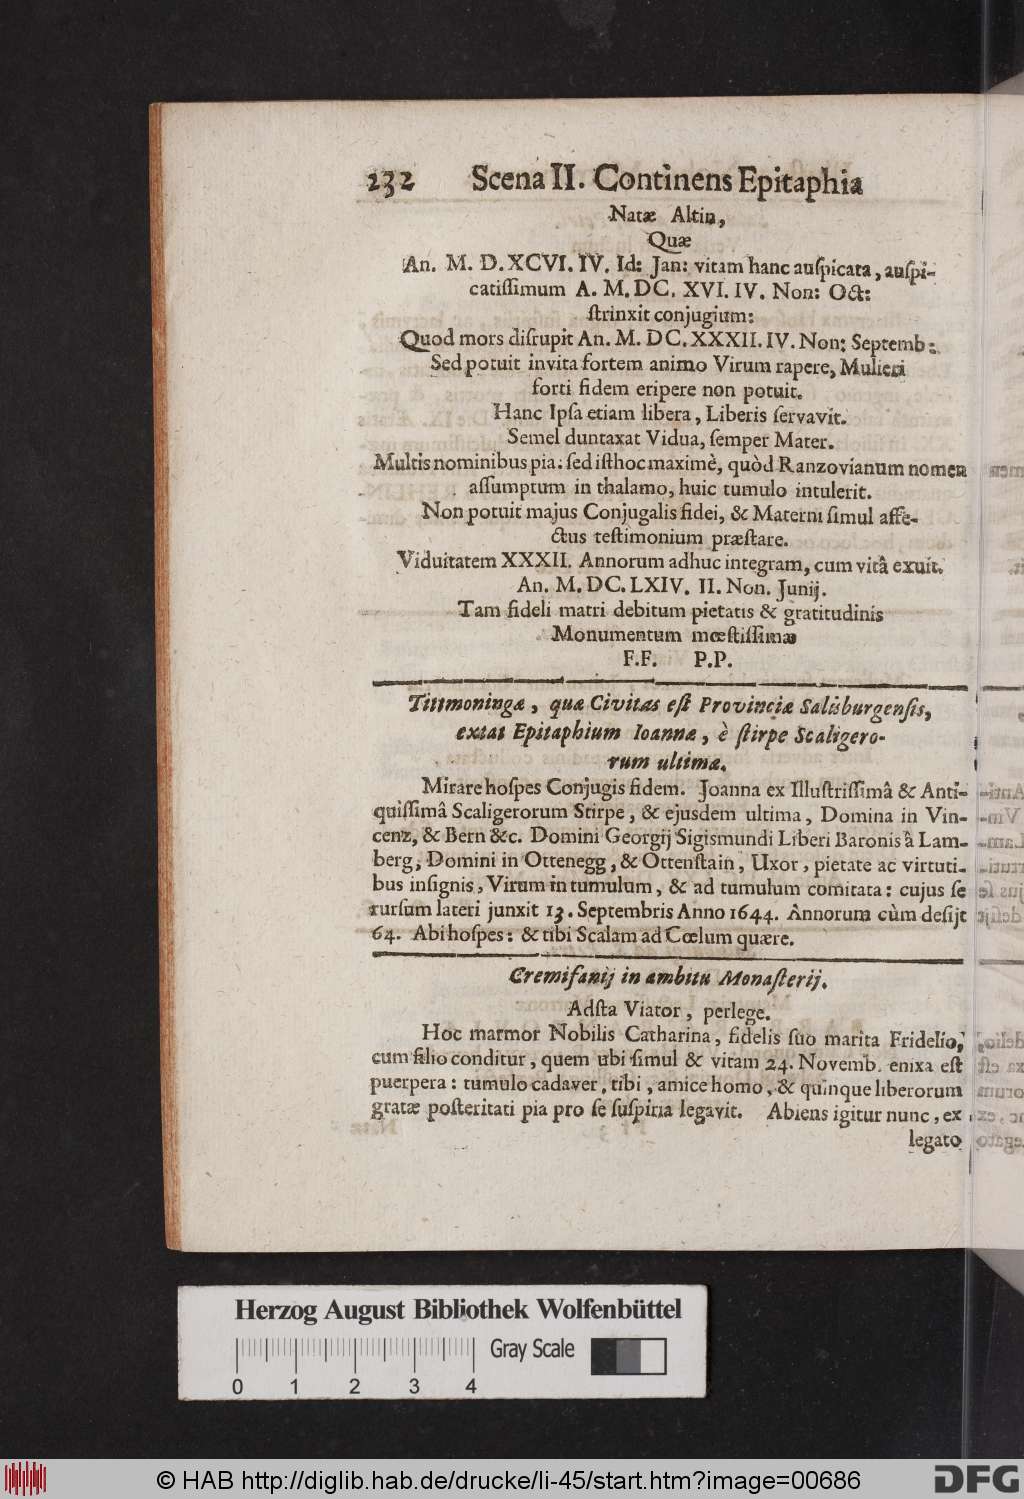 232 Scena II. Continens Epitaphia
Natæ Altin,
Quæ
An. M. D. XCVI. IV. Id: Jan: vitam hanc auſpicata, auſpi-
catiſſimum A. M. DC. XVI. IV. Non: Oct:
ſtrinxit conjugium:
Quod mors diſrupit An. M. DC. XXXII. IV. Non: Septemb:
Sed potuit invita fortem animo Virum rapere, Mulieri
forti fidem eripere non potuit.
Hanc Ipſa etiam libera, Liberis ſervavit.
Semel duntaxat Vidua, ſemper Mater.
Multis nominibus pia: ſed iſthoc maximè, quòd Ranzovianum nomen
aſſumptum in thalamo, huic tumulo intulerit.
Non potuit majus Conjugalis fidei, & Materni ſimul affe-
ctus teſtimonium præſtare.
Viduitatem XXXII. Annorum adhuc integram, cum vitâ exuit.
An. M. DC. LXIV. II. Non. Junij.
Tam fideli matri debitum pietatis & gratitudinis
Monumentum mœſtiſſimæ
F.F. P.P.
Tittmoningæ, quæ Civitas eſt Provinciæ Salisburgenſis,
extat Epitaphium Ioannæ, è ſtirpe Scaligero-
rum ultimæ.
Mirare hoſpes Conjugis fidem. Joanna ex Illuſtriſſimâ & Anti-
quiſſimâ Scaligerorum Stirpe, & ejusdem ultima, Domina in Vin-
cenz, & Bern &c. Domini Georgij Sigismundi Liberi Baronis â Lam-
berg, Domini in Ottenegg, & Ottenſtain, Uxor, pietate ac virtuti-
bus inſignis, Virum in tumulum, & ad tumulum comitata: cujus ſe
rurſum lateri junxit 13. Septembris Anno 1644. Ânnorum cùm deſijt
64. Abi hoſpes: & tibi Scalam ad Cœlum quære.
Cremifanij in ambitu Monaſterij.
Adſta Viator, perlege.
Hoc marmor Nobilis Catharina, fidelis ſuo marita Fridelio,
cum filio conditur, quem ubi ſimul & vitam 24. Novemb. enixa eſt
puerpera: tumulo cadaver, tibi, amice homo, & quinque liberorum
gratæ poſteritati pia pro ſe ſuſpiria legavit. Abiens igitur nunc, ex
legato
Herzog August Bibliothek Wolfenbüttel
Gray Scale
0 1 2 3 4
© HAB http://diglib.hab.de/drucke/li-45/start.htm?image=00686
DFG